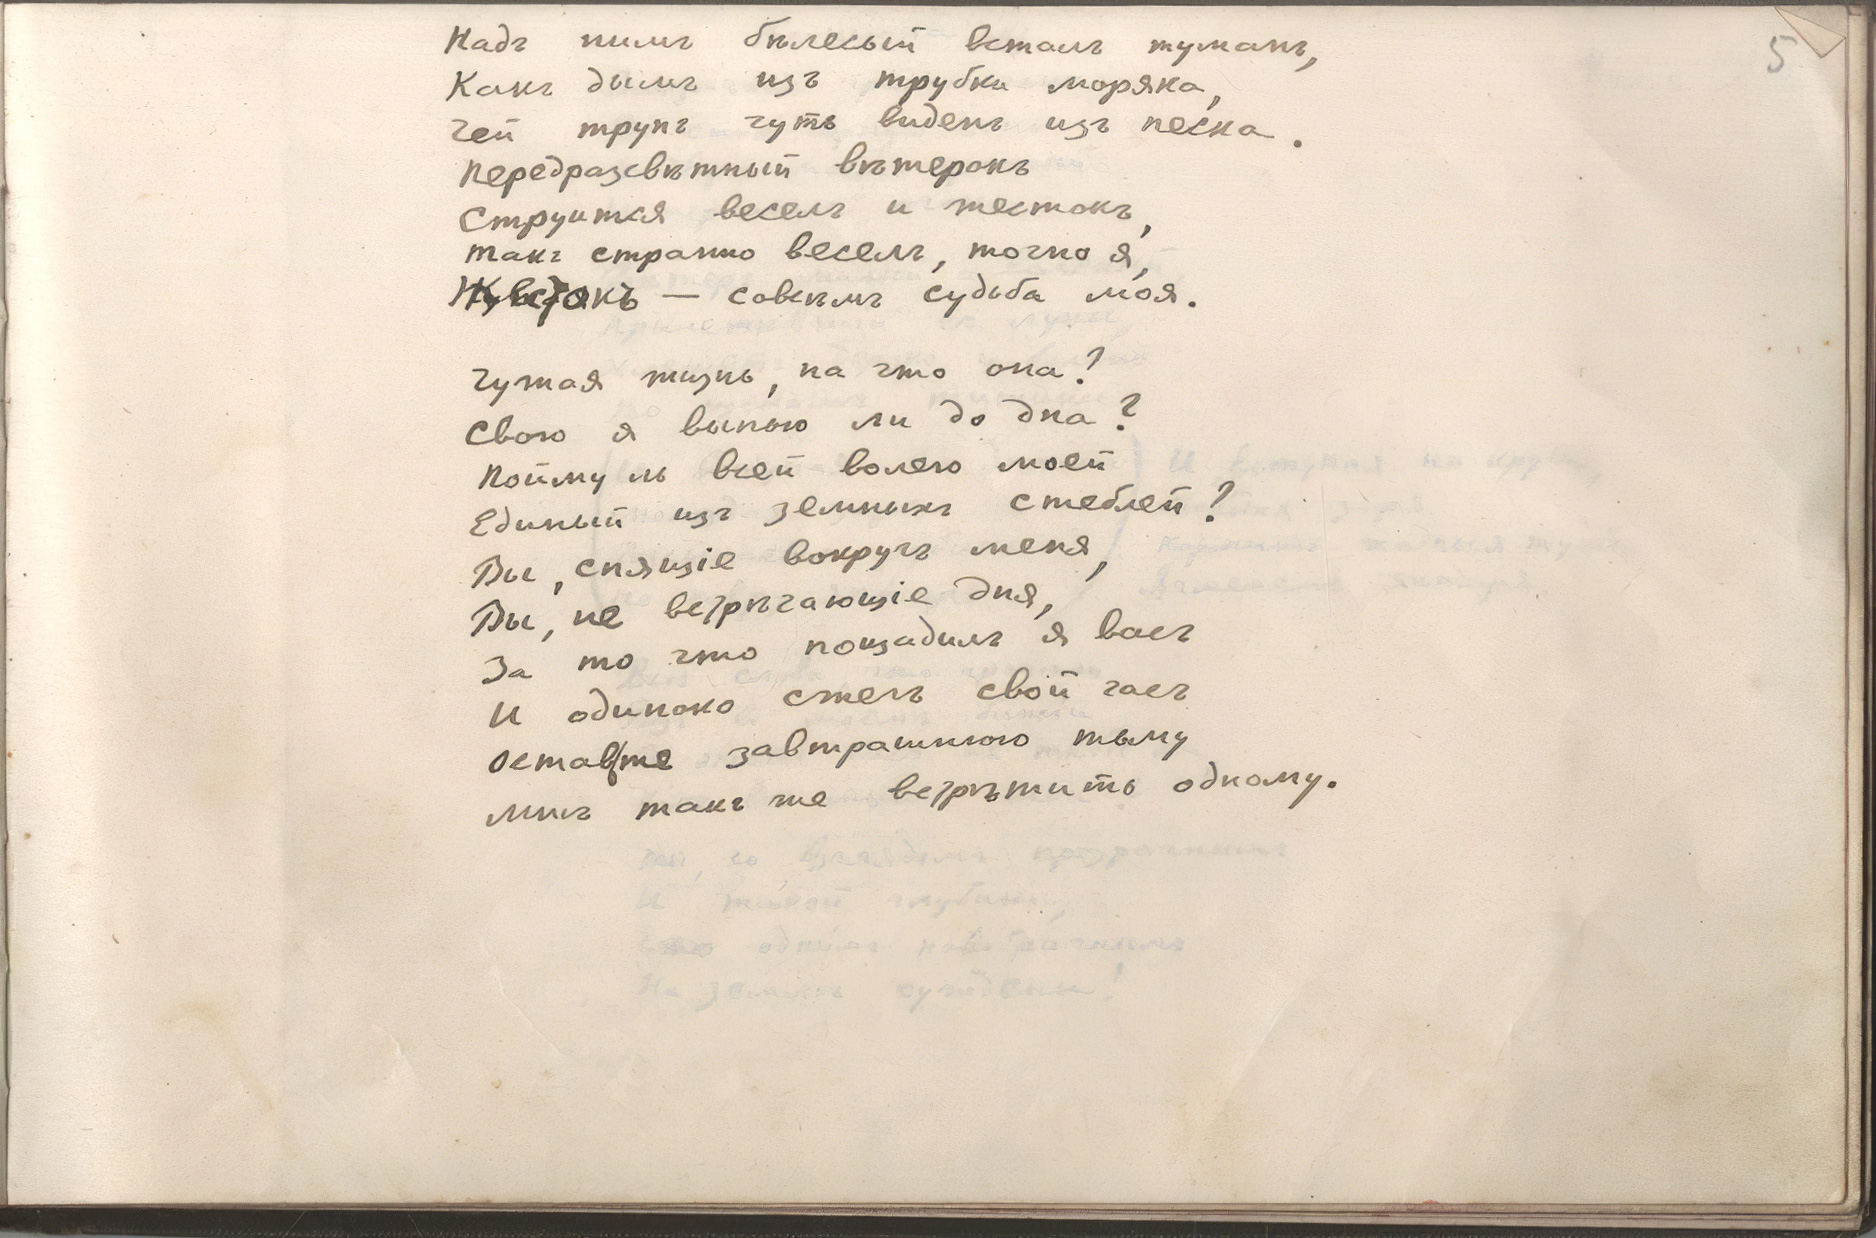 5
Надъ нимъ бѣлесый всталъ туманъ,
Какъ дымъ изъ трубки моряка,
Чей трупъ чуть виденъ изъ песка.
Передразсвѣтный вѣтерокъ
Струится веселъ и жестокъ,
Такъ странно веселъ, точно я,
Жестокъ — совсѣмъ судьба моя.
Чужая жизнь, на что она?
Свою я выпью ли до дна?
Пойму ль всей волею моей
Единый изъ земныхъ стеблей?
Вы, спящіе вокругъ меня,
Вы, не встрѣчающіе дня,
За то что пощадилъ я васъ
И одиноко сжегъ свой часъ
Оставьте завтрашнюю тьму
Мнѣ такъ же встрѣтить одному.